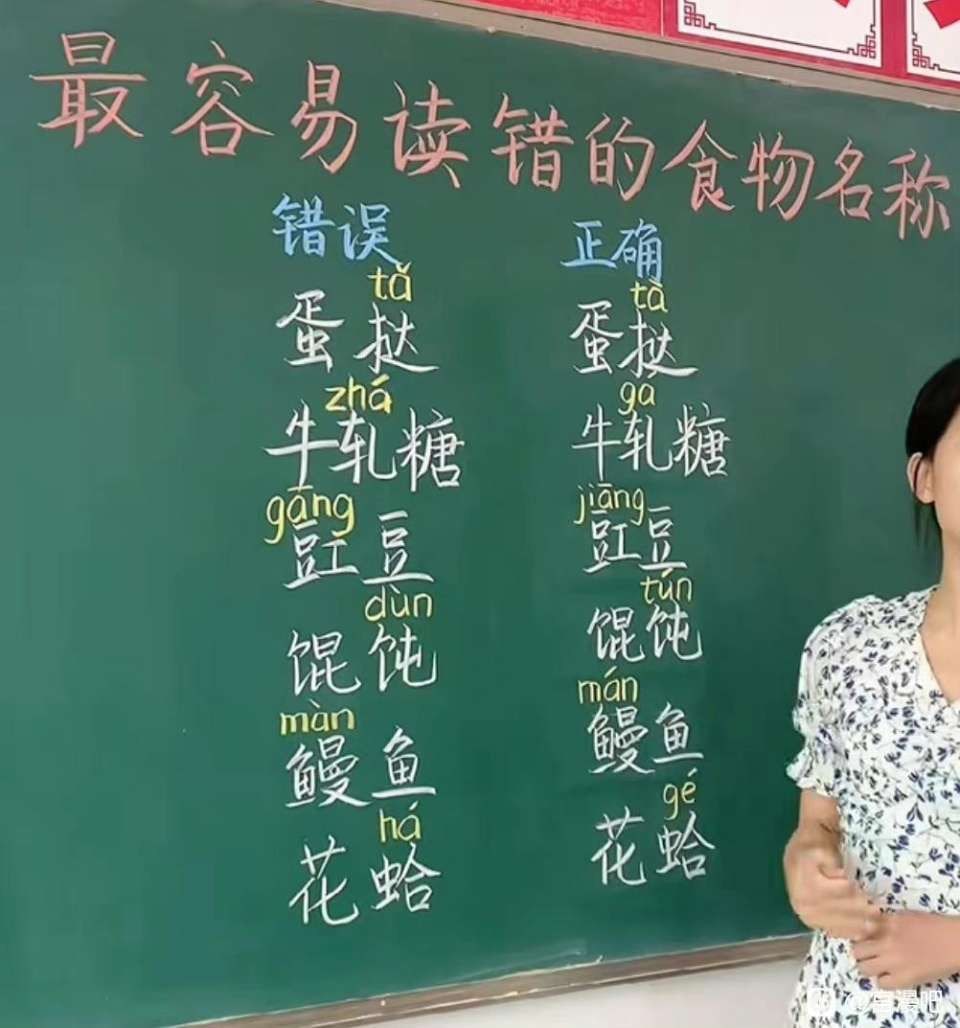 最容易读错的食物名称
错误 正确
tǎ tà
蛋挞 蛋挞
zhá gá
牛轧糖 牛轧糖
gāng jiāng
豇豆 豇豆
dùn tún
馄饨 馄饨
màn mán
鳗鱼 鳗鱼
há gé
花蛤 花蛤